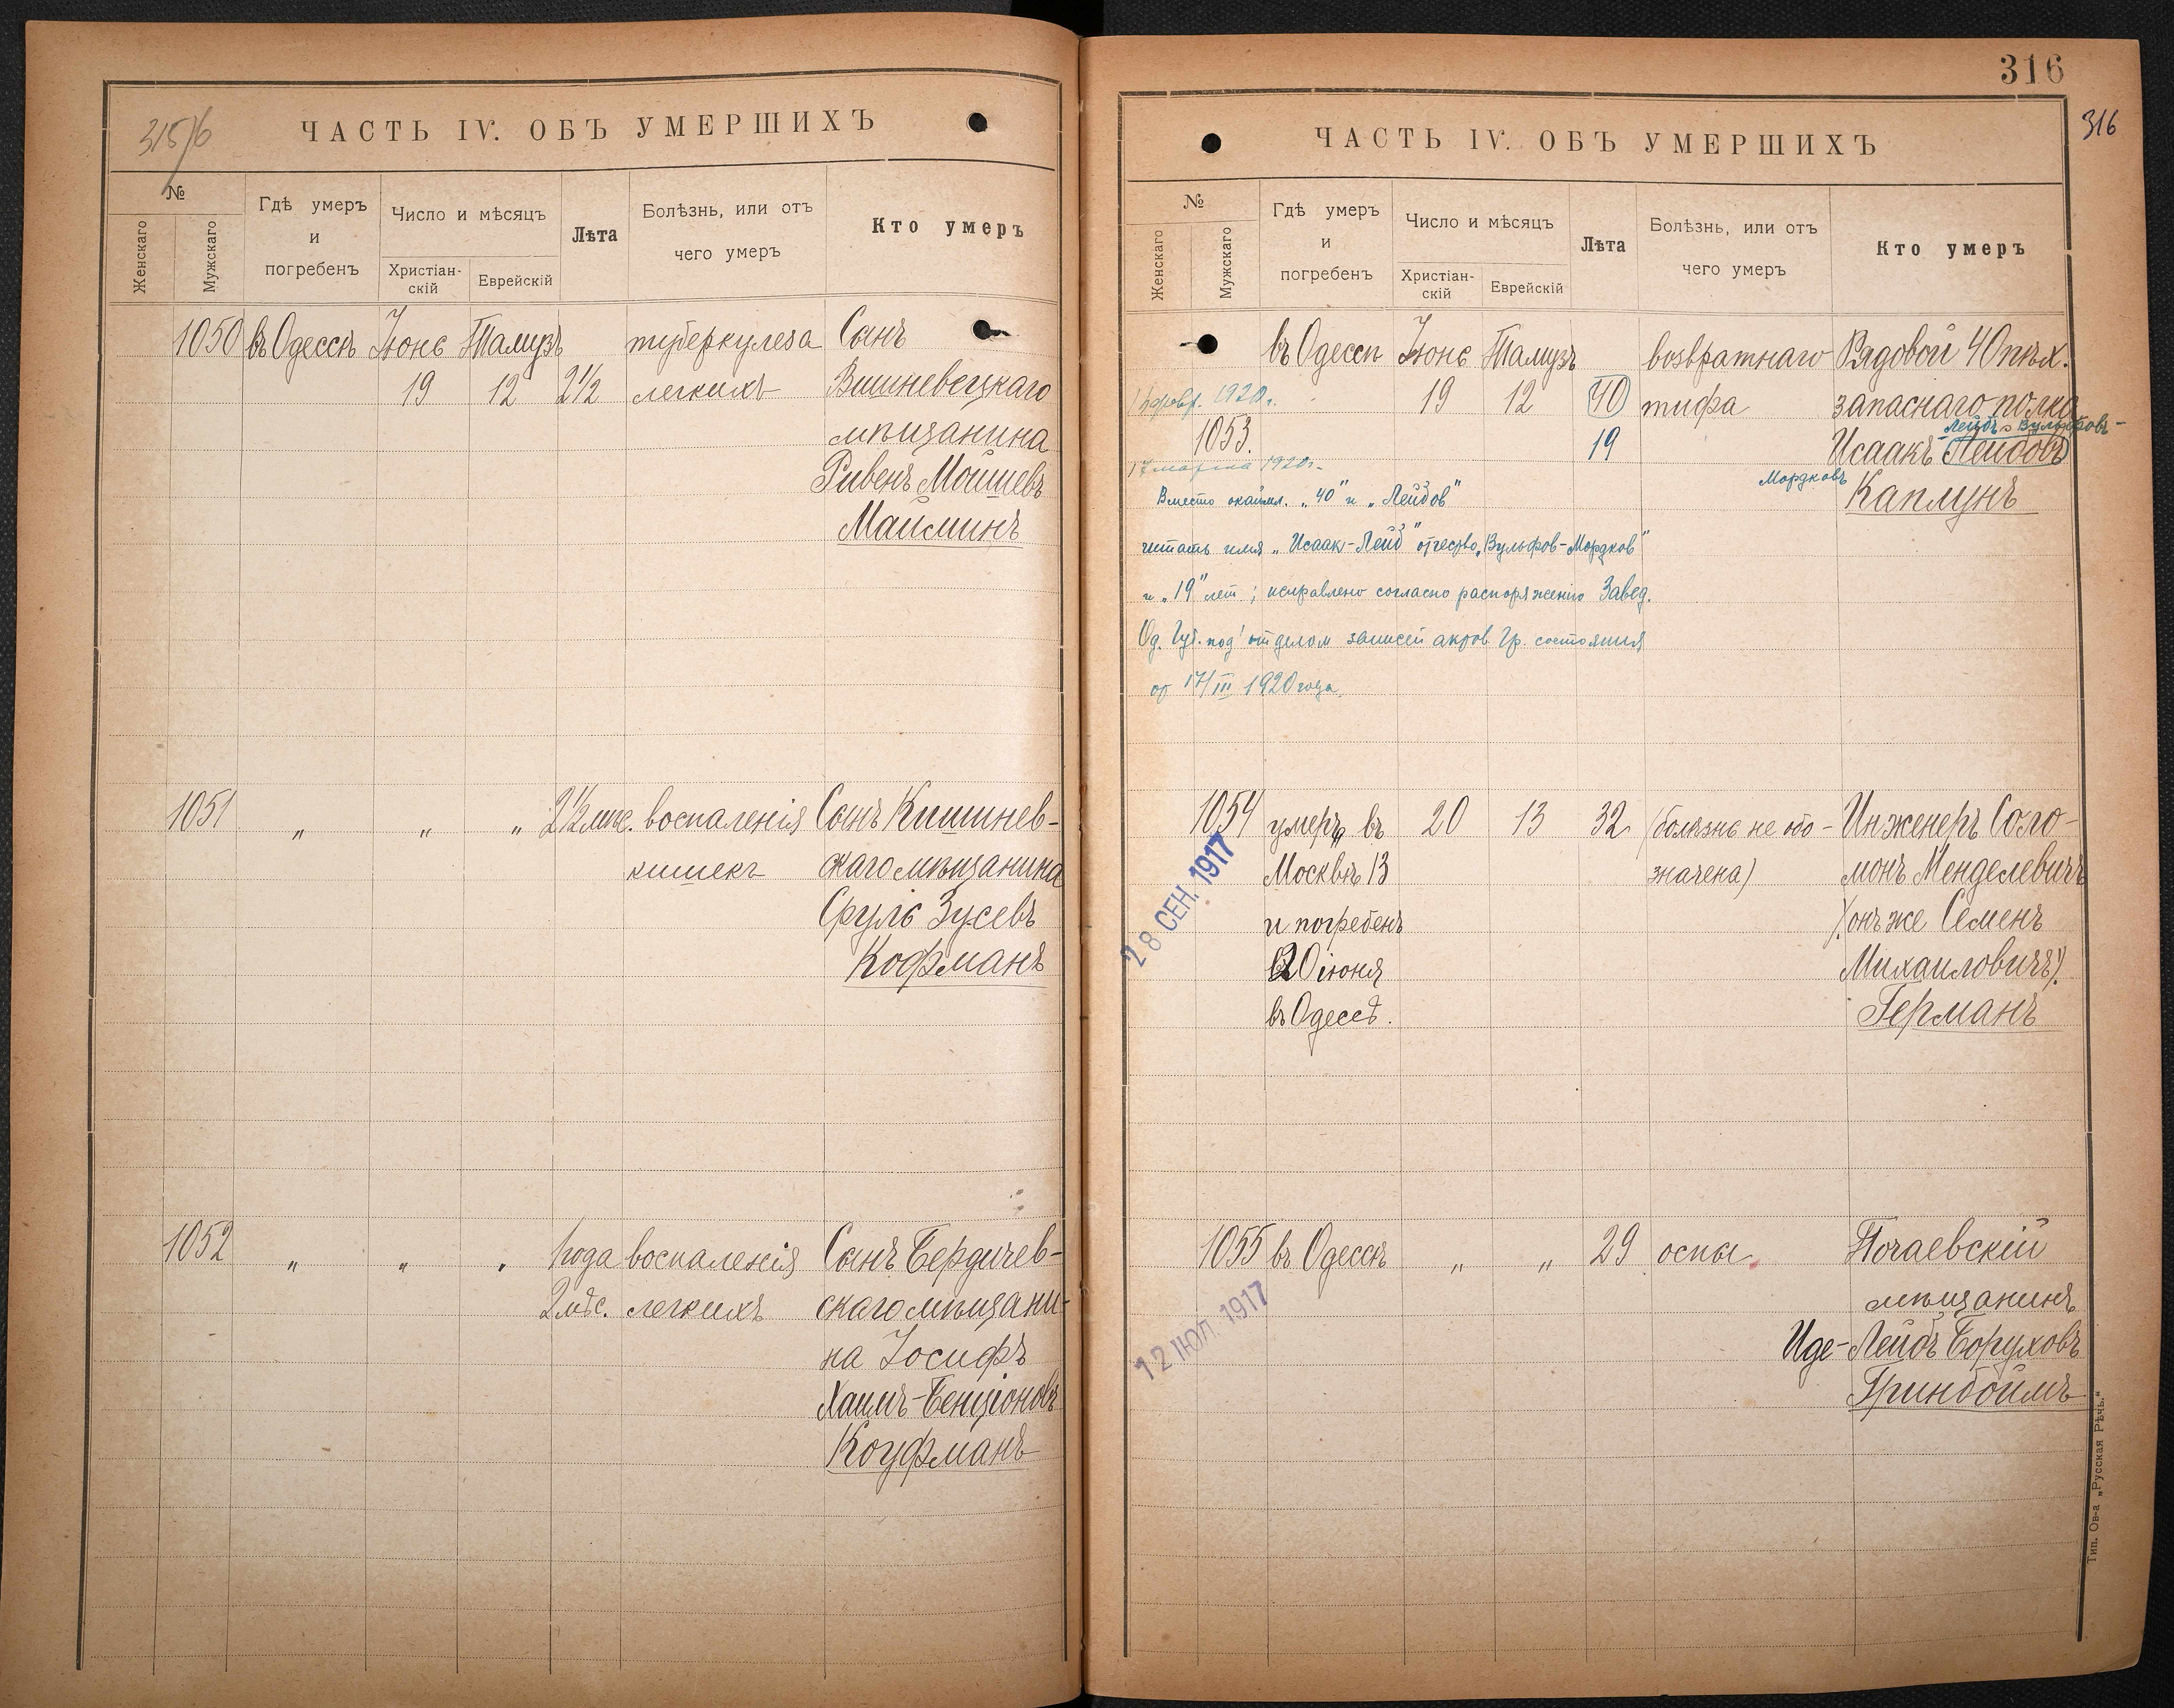 315/6
ЧАСТЬ IV. ОБЪ УМЕРШИХЪ
№
Женскаго
Мужскаго
Гдѣ умеръ
и
погребенъ
Число и мѣсяцъ
Христіан-
скій
Еврейскій
Лѣта
Болѣзнь, или отъ
чего умеръ
Кто умеръ
1050 въ Одессѣ Іюнь Тамузъ туберкулеза Сынъ
19 12 2 1/2 легкихъ Вишневецкаго
мѣщанина
Рувенъ Мошшевъ
Маисминъ
1051 „ „ „ 2 1/2 мѣс. воспаленія Сынъ Кишинев-
кишекъ скаго мѣщанина
Сруль Зусевъ
Кофманъ
1052 „ „ „ 1 года воспаленія Сынъ Бердичев-
2 мѣс. легкихъ скаго мѣщани-
на Іосифъ
Хаимъ-Бенціоновъ
Коуфманъ
316
316
ЧАСТЬ IV. ОБЪ УМЕРШИХЪ
№
Женскаго
Мужскаго
Гдѣ умеръ
и
погребенъ
Число и мѣсяцъ
Христіан-
скій
Еврейскій
Лѣта
Болѣзнь, или отъ
чего умеръ
Кто умеръ
въ Одессѣ Іюнь Тамузъ возвратнаго Рядовой 40 пѣх.
февр. 1920 г. 19 12 40 тифа запаснаго полка
Лейбъ Вульфовъ-
1053. 19 Исаакъ-Лейбовъ
17 марта 1920 г.
Мордковъ Каплунъ
Вместо окаймл. „40" и „Лейбов"
читать имя „Исаак-Лейб" отчество „Вульфов-Мордков"
и „19" лет; исправлено согласно распоряжению Завед.
Од. Губ. под'отделом записей актов Гр. состояния
от 17/III 1920 года.
1054 умеръ въ 20 13 32 (болѣзнь не обо- Инженеръ Соло-
28 СЕН. 1917
Москвѣ 13 значена) монъ Менделевичъ
и погребенъ (онъ же Семенъ
20 іюня Михаиловичъ)
въ Одессѣ. Германъ
1055 въ Одессѣ „ „ 29 оспы Почаевскій
12 ІЮЛ. 1917
мѣщанинъ
Иде-Лейбъ Боруховъ
Гринбоймъ
Тип. Ов-а „Русская Рѣчь."